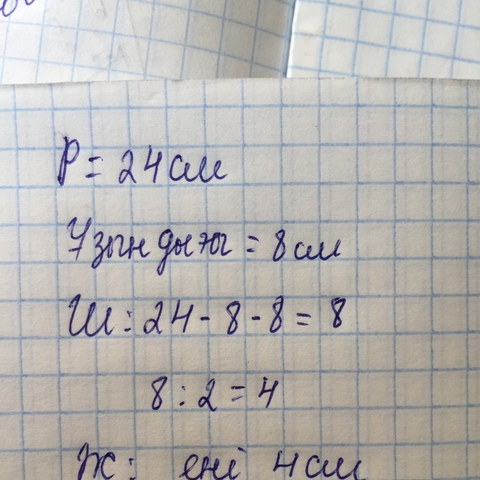 P = 24 см
Ұзындығы = 8 см
Ш: 24 - 8 - 8 = 8
8 : 2 = 4
Ж: ені 4 см